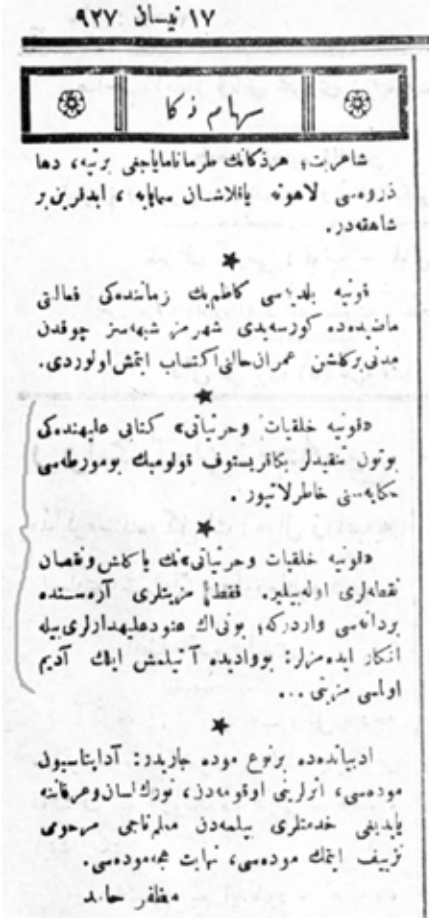 ١٧ نيسان ٩٢٧
سهام ذكا
شاعريت؛ هرذكانك طرماناماياجغى برتپه، دها
ذروه‌سى لاهوته ياقلاشان سماپايه، ابدقرين بر
شاهقه‌در.
★
قونيه بلديه‌سى كاظم‌بك زماننده‌كى فعاليتى
ماضيده‌ده كورسه‌يدى شهرمز شبهه‌سز چوقدن
مدنى بركلشن عمران حالنى اكتساب ايتمش اولوردى.
★
«قونيه خلقيات وحرثياتى» كتابى عليهنده‌كى
بوتون تنقيدلر بكا قريستوف قولومبك يومورطه‌سى
حكايه‌سنى خاطرلاتيور.
★
«قونيه خلقيات وحرثياتى»نك ياكلش ونقصان
نقطه‌لرى اوله‌بيلير. فقط مزيتلرى آره‌سنده
بردانه‌سى واردركه؛ بونى اك عنود عليهدارلرى بيله
انكار ايده‌مزلر: بووادیده آتيلمش ايلك آديم
اولمسى مزيتى...
★
ادبياتده‌ده برنوع موده جاريدر: آداپتاسيون
موده‌سى، اثرلرينى اوقومه‌دن، تورك لسان وعرفاننه
ياپديغى خدمتلرى بيلمه‌دن معلم ناجى مرحومى
تزييف ايتمك موده‌سى، نهايت هجو موده‌سى.
مظفر حامد